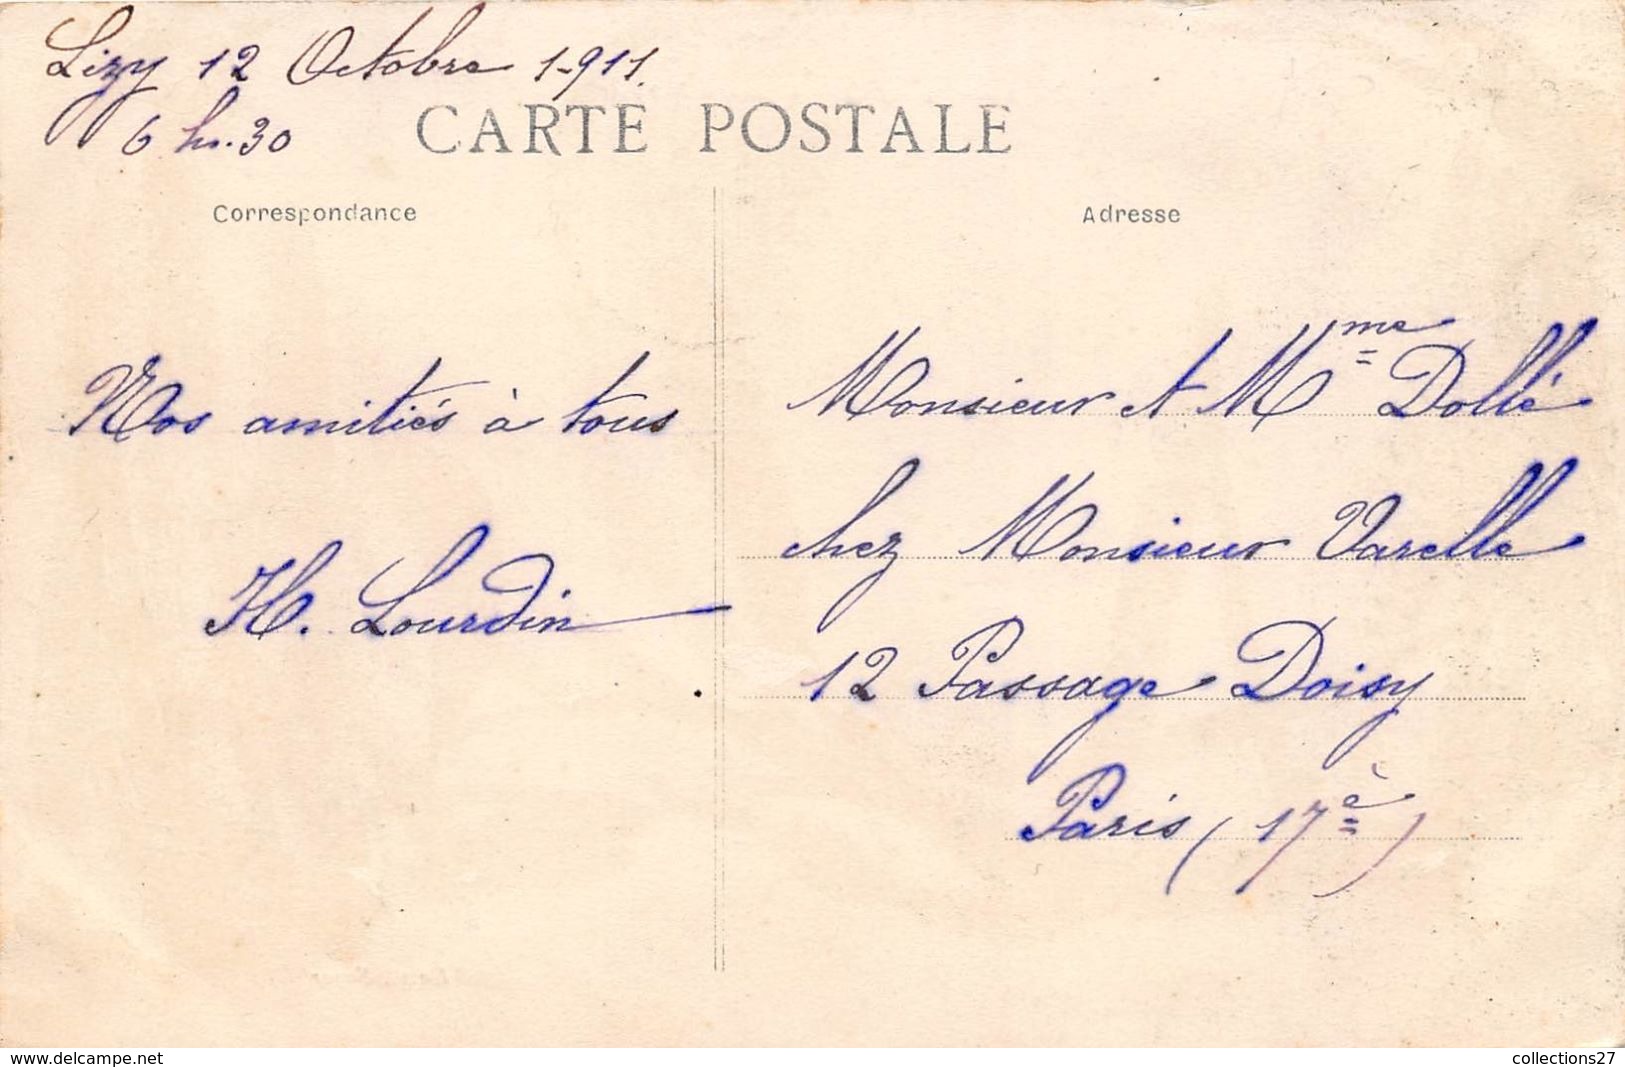 Lizy 12 Octobre 1911.
6 hs. 30
CARTE POSTALE
Correspondance
Adresse
Nos amitiés à tous
H. Lourdin
Monsieur et Mme Dollé
chez Monsieur Varelle
12 Passage Doisy
Paris (17è)
www.delcampe.net
collections27